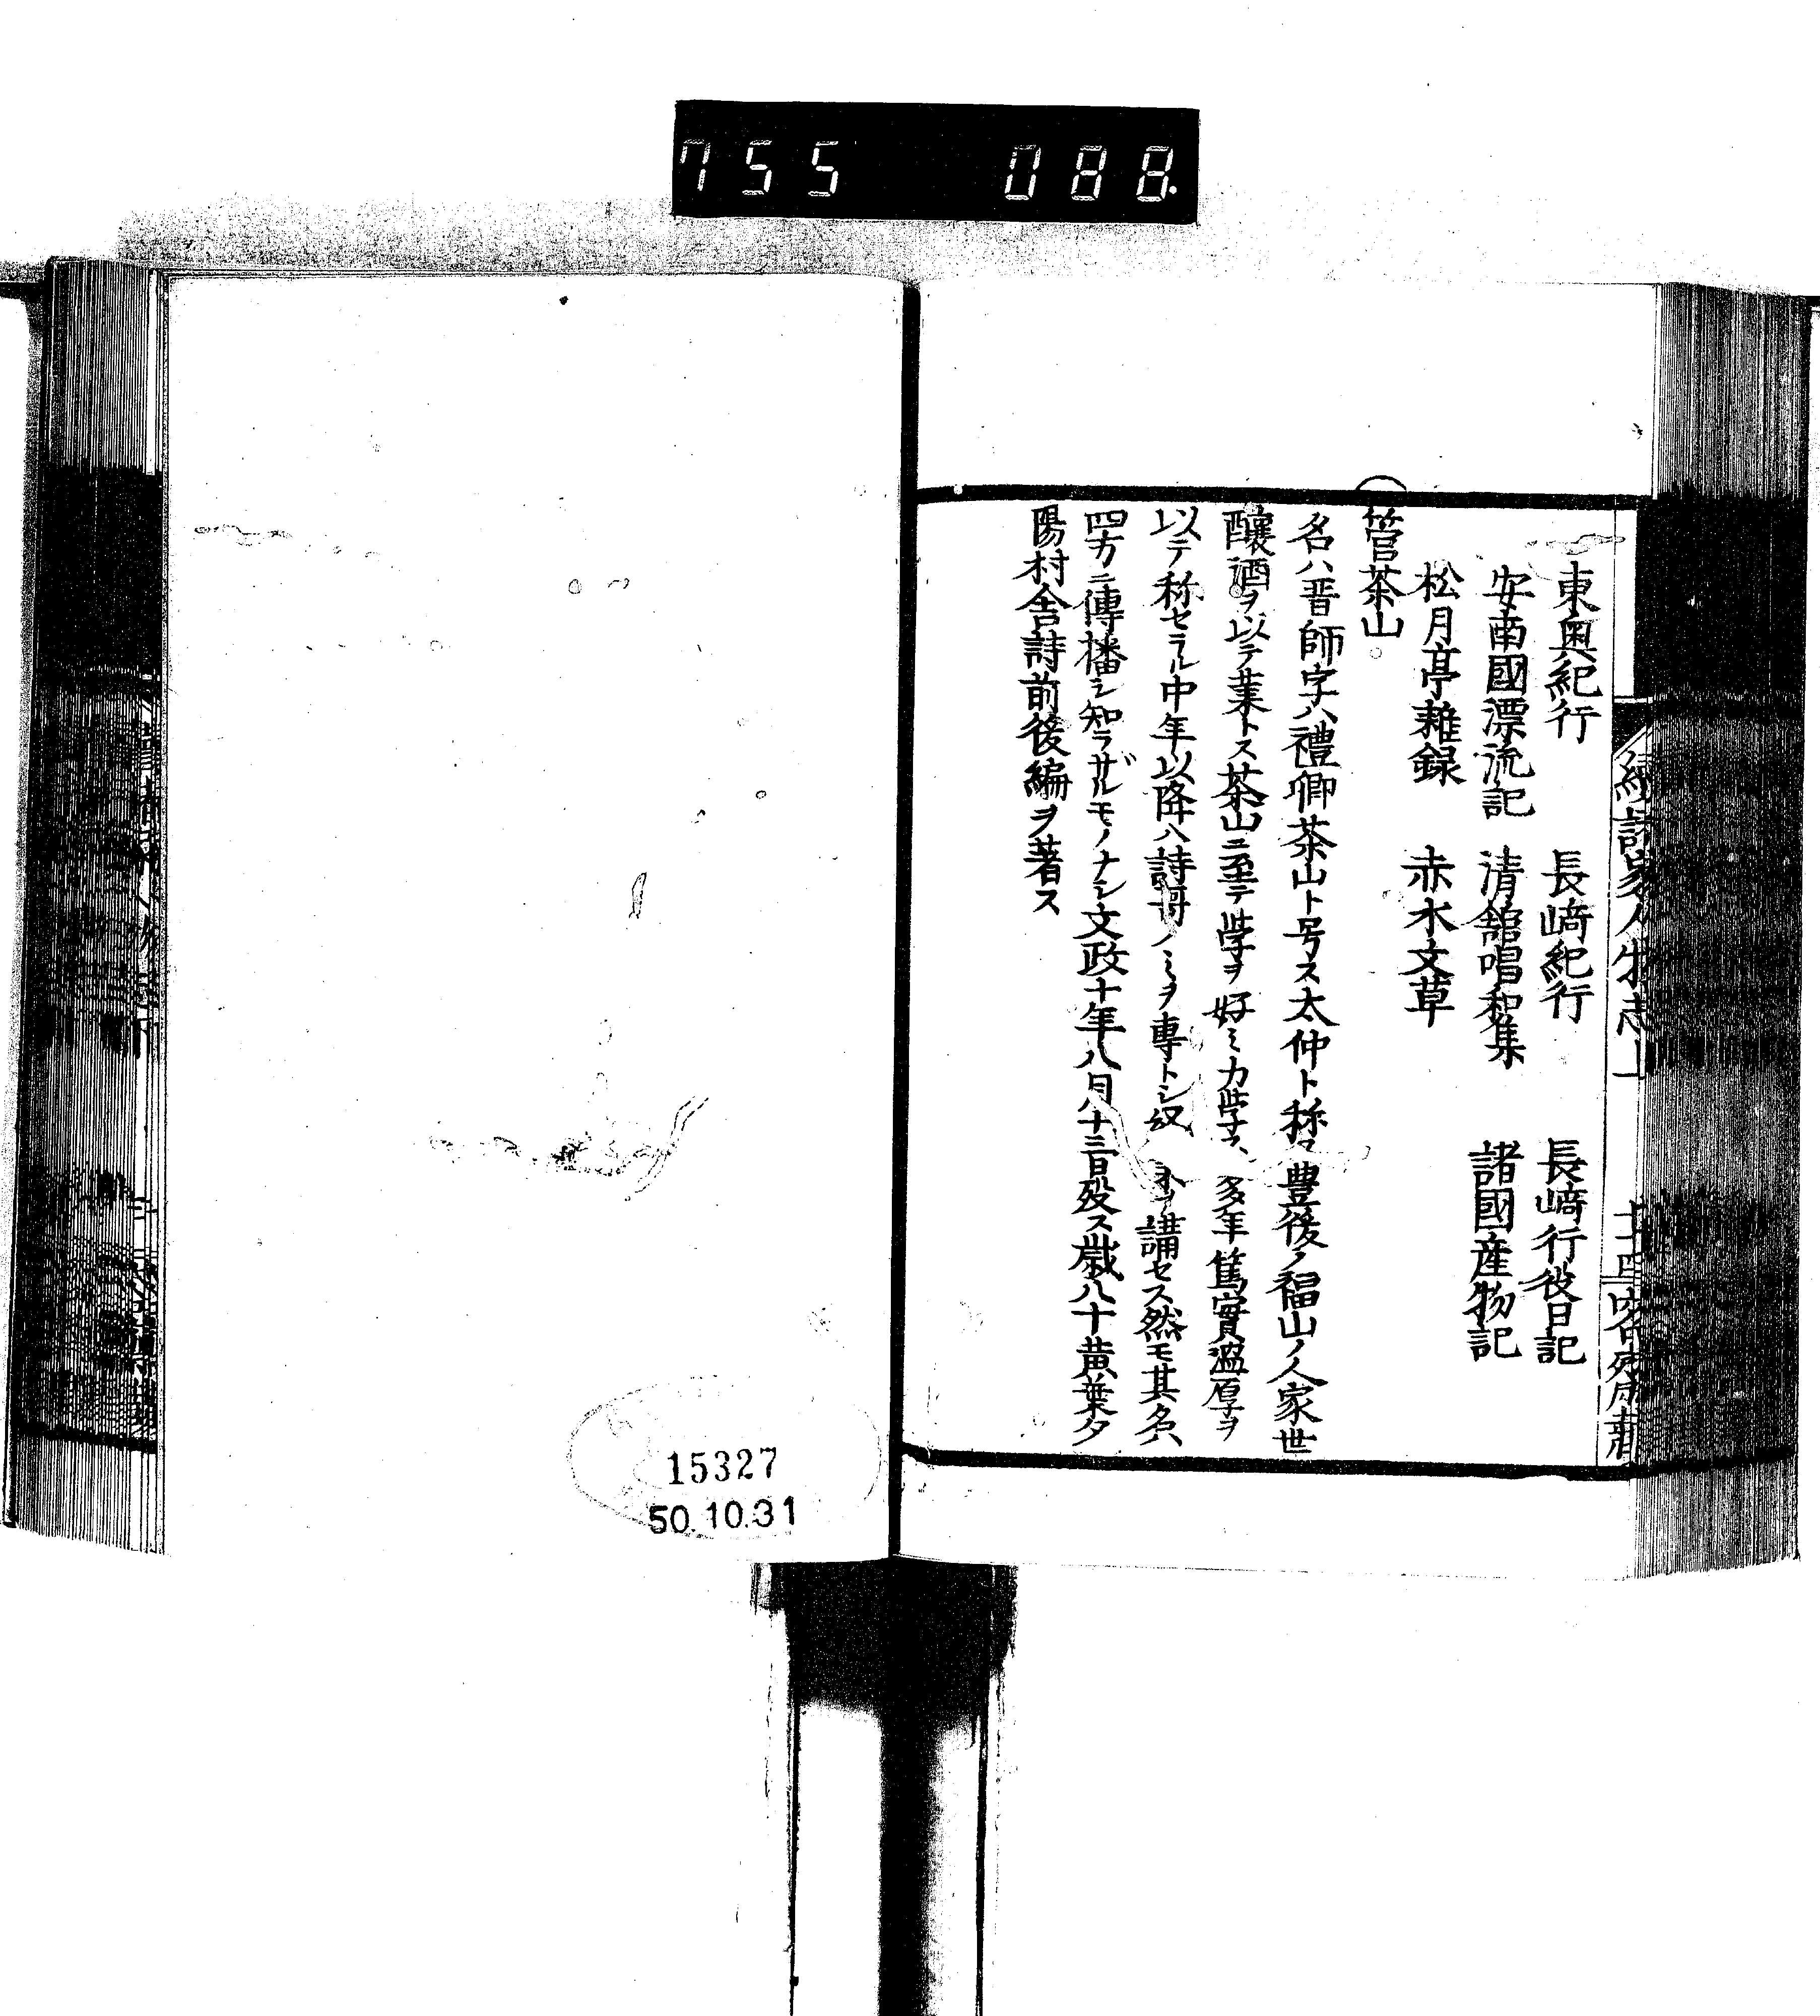 755 088.
東奥紀行 長﨑紀行 長﨑行役日記
安南國漂流記 清舘唱和集 諸國産物記
松月亭雜録 赤水文草
管茶山
名ハ晋師字ハ禮卿茶山ト号ス太仲ト称ス豊後ノ福山ノ人家世
釀酒ヲ以テ業トス茶山ニ至テ学ヲ好ミ力学ス多年篤實温厚ヲ
以テ称セラル中年以降ハ詩哥ノミヲ專トシ講セス然モ其名ハ
四方ニ傳播シ知ラザルモノナシ文政十年八月十三日殁ス歳八十黄葉夕
陽村舎詩前後編ヲ著ス
續諸家人物志上
15327
50.10.31